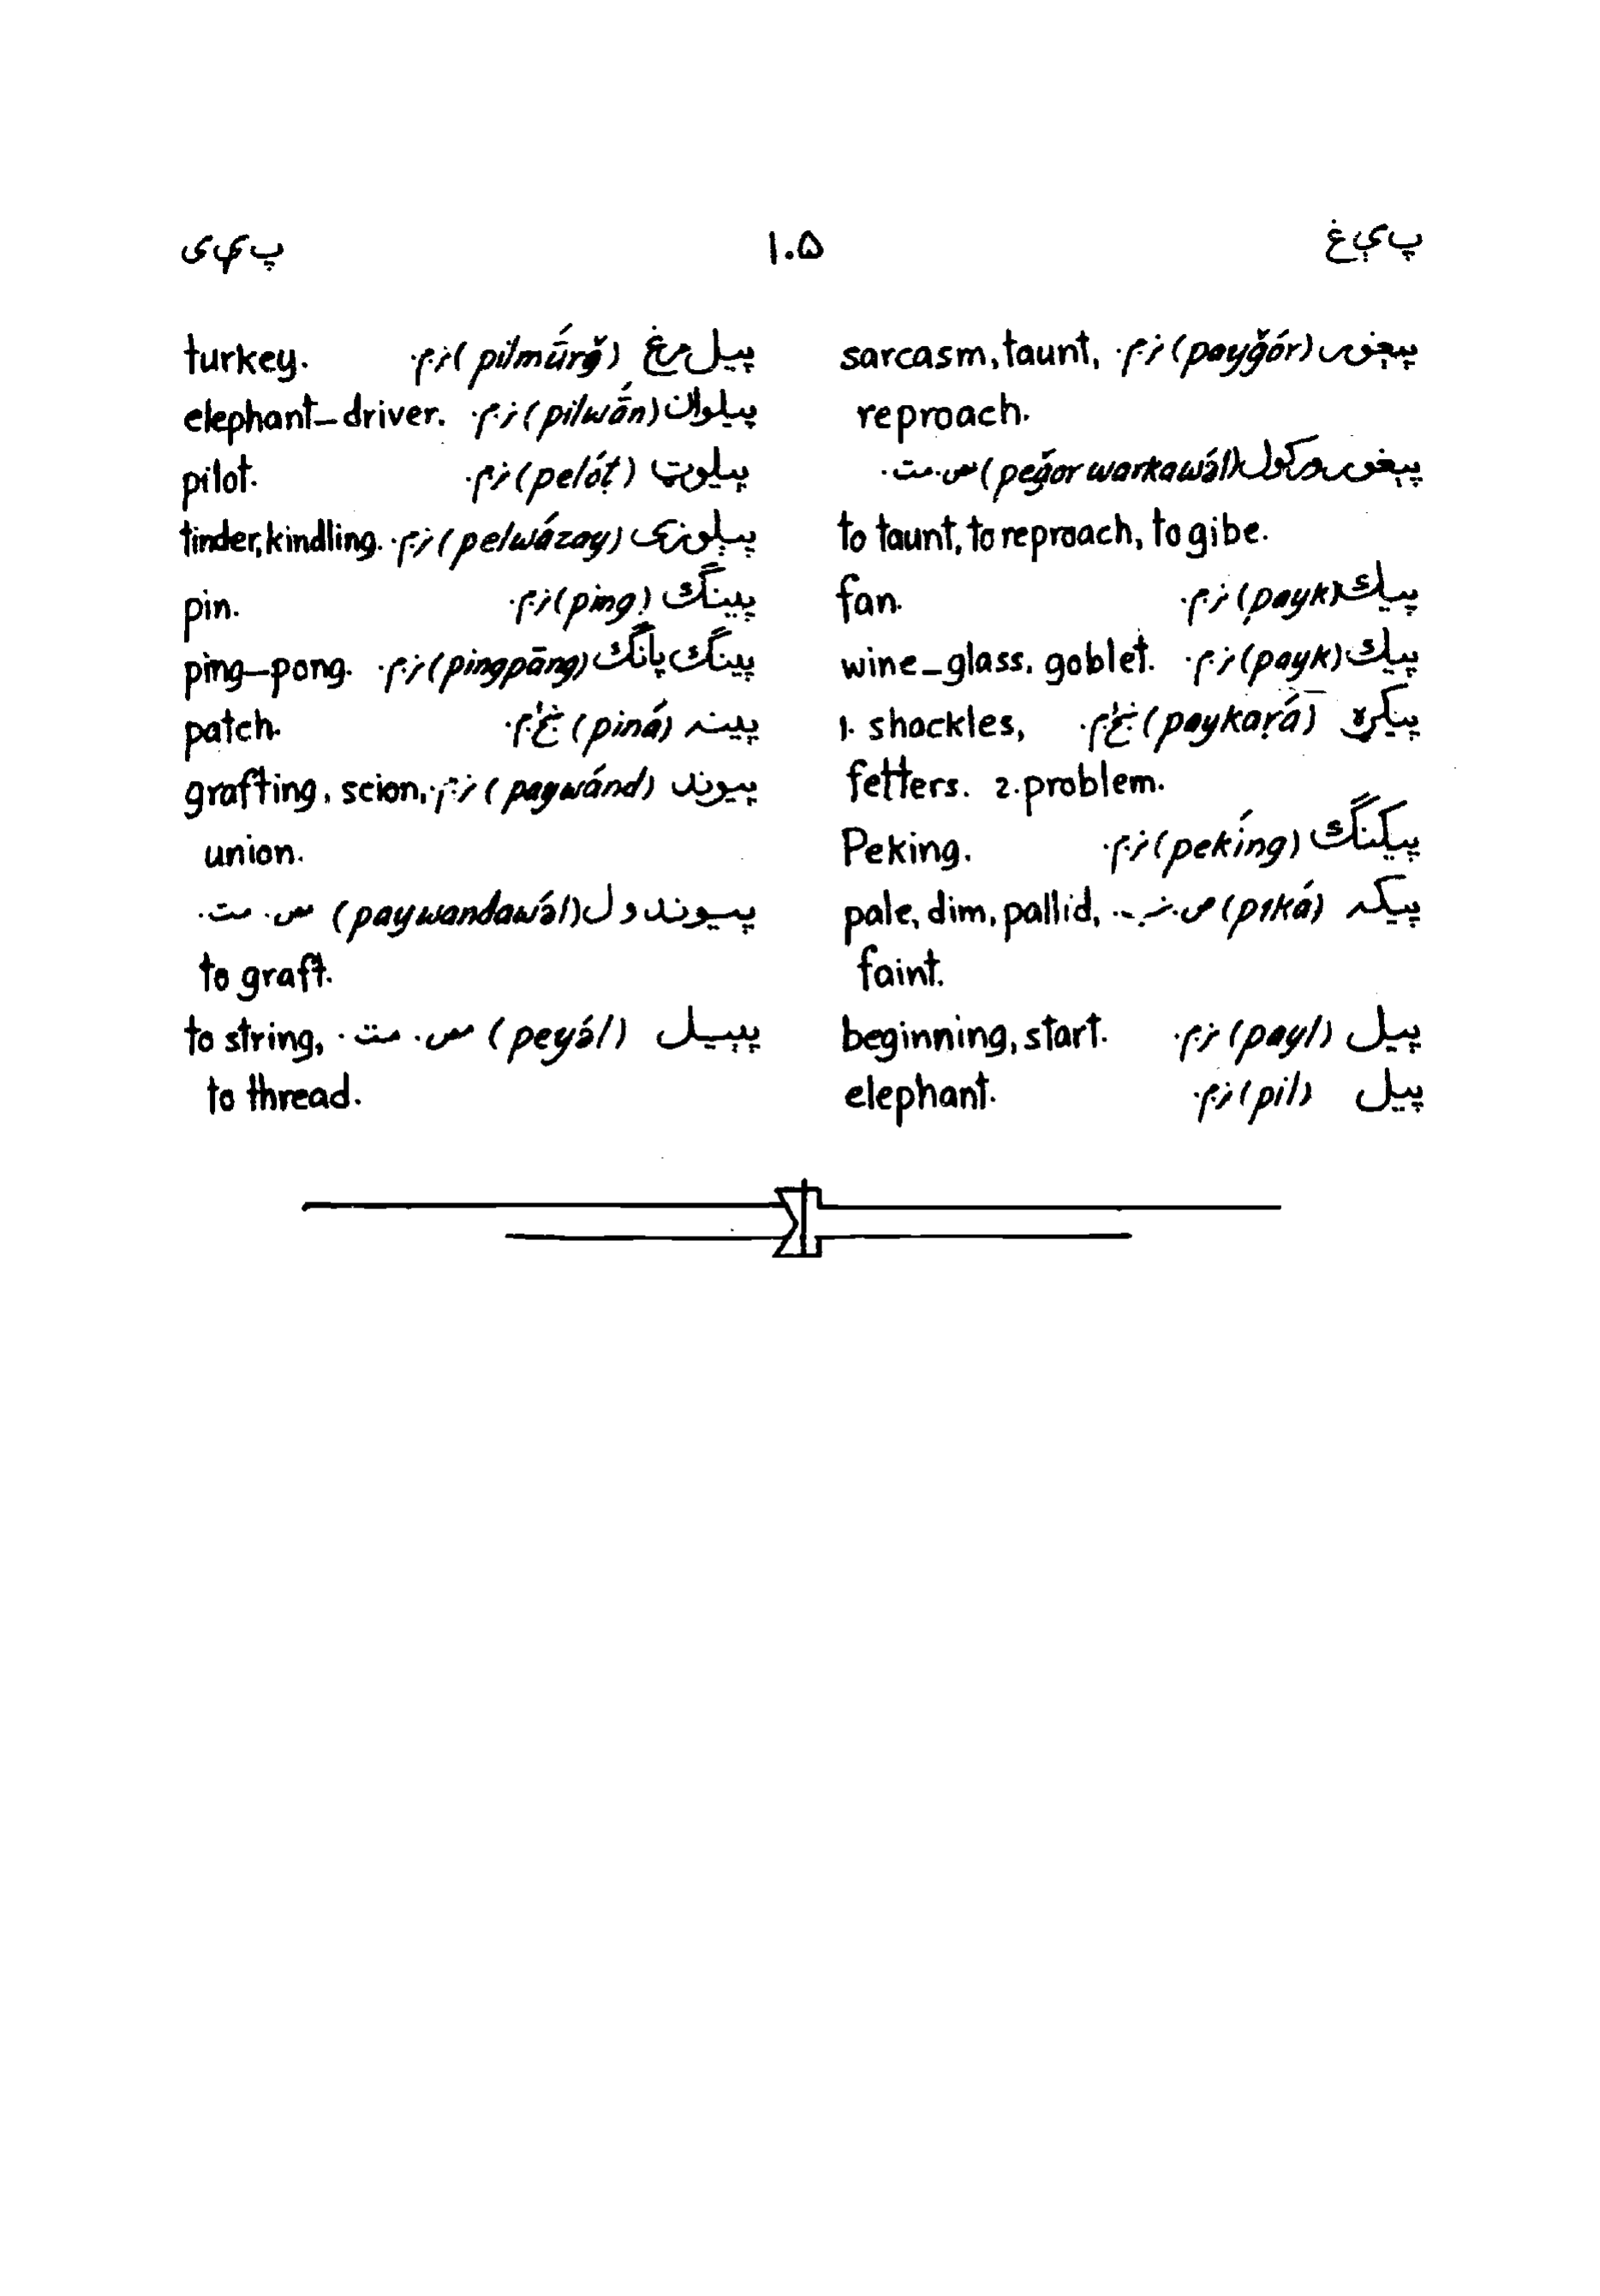 پ ې غ
۱۰۵
پ ی ی
پیغور (payğór) ن.م. sarcasm, taunt,
reproach.
پیغور ورکول (peğor warkawə́l) س. مت.
to taunt, to reproach, to gibe.
پیک (payk) ن.م. fan.
پیک (payk) ن.م. wine-glass, goblet.
پیکړه (paykaṛá) ښځ.م. 1. shackles,
fetters. 2. problem.
پیکنگ (pekíng) ن.م. Peking.
پیکه (piká) ص. pale, dim, pallid,
faint.
پیل (payl) ن.م. beginning, start.
پیل (pil) ن.م. elephant.
پیل مرغ (pilmúrğ) ن.م. turkey.
پیلوان (pilwā́n) ن.م. elephant-driver.
پیلوټ (pelóṭ) ن.م. pilot.
پېلوزی (pelwázay) ن.م. tinder, kindling.
پینگ (ping) ن.م. pin.
پینگ پانگ (pingpāng) ن.م. ping-pong.
پینه (piná) ښځ.م. patch.
پیوند (paywánd) ن.م. grafting, scion,
union.
پیوندول (paywandawə́l) س. مت.
to graft.
پېیل (peyə́l) س. مت. to string,
to thread.